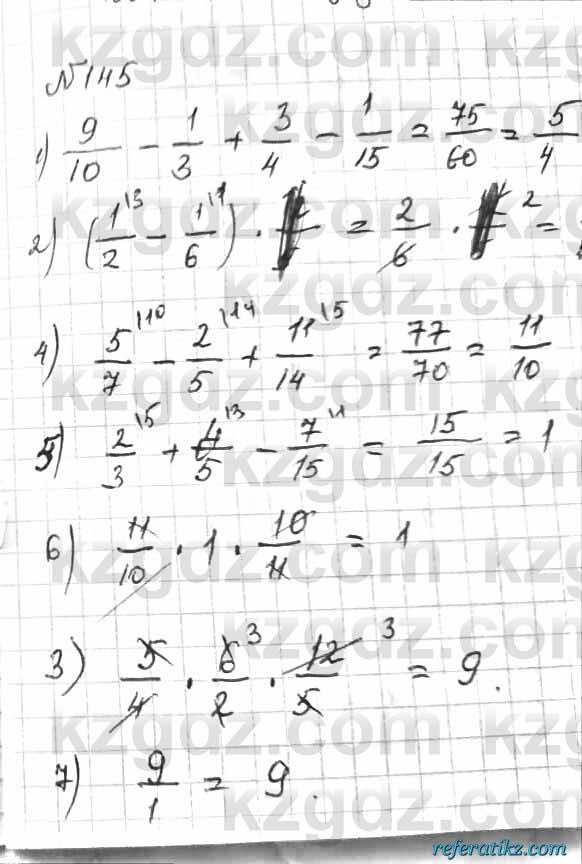 №145
1) 9/10 - 1/3 + 3/4 - 1/15 = 75/60 = 5/4
2) (1/2 |3 - 1/6 |1) · = 2/6 · 2 =
4) 5/7 |10 - 2/5 |14 + 11/14 |5 = 77/70 = 11/10
5) 2/3 |5 + 4/5 |3 - 7/15 |1 = 15/15 = 1
6) 11/10 · 1 · 10/11 = 1
3) 5/4 · 6/2 3 · 12/5 3 = 9.
7) 9/1 = 9.
kzgdz.com
referatikz.com